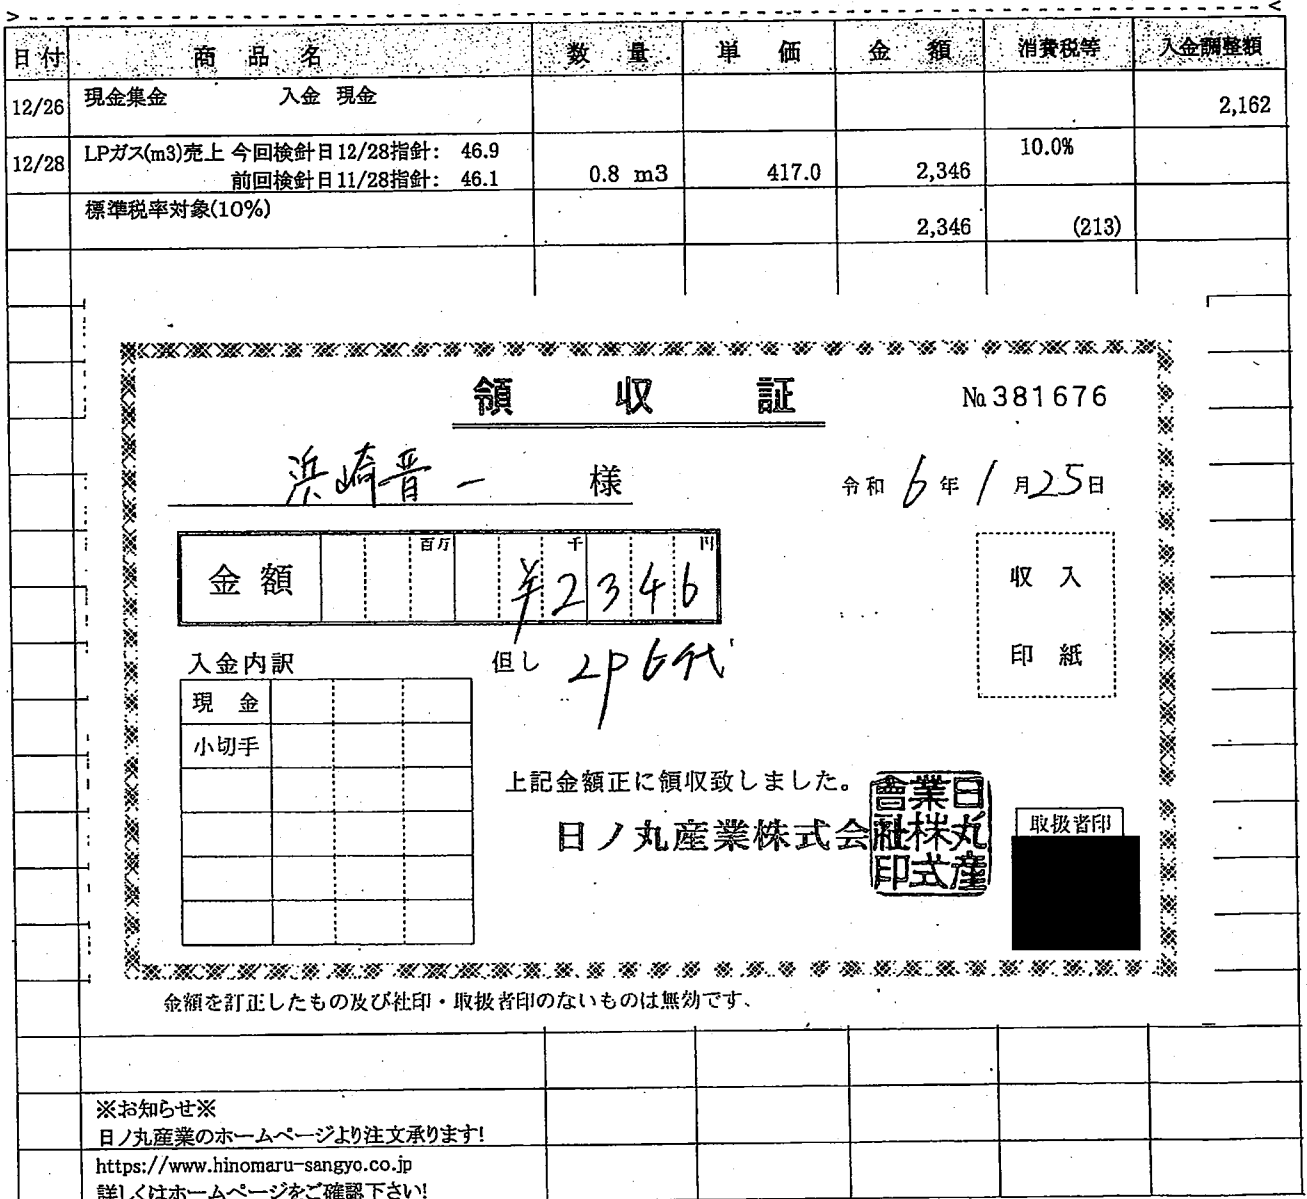 日付 商品名 数量 単価 金額 消費税等 入金調整額
12/26 現金集金 入金 現金 2,162
12/28 LPガス(m3)売上 今回検針日12/28指針: 46.9 10.0%
前回検針日11/28指針: 46.1 0.8 m3 417.0 2,346
標準税率対象(10%) 2,346 (213)
領収証 № 381676
浜崎晋一 様 令和 6年 1月25日
金額 百万 千 円 ¥2346
収入
印紙
入金内訳 但し LPG代
現金
小切手
上記金額正に領収致しました。
日ノ丸産業株式会社
日丸産業株式會社印
取扱者印
金額を訂正したもの及び社印・取扱者印のないものは無効です、
※お知らせ※
日ノ丸産業のホームページより注文承ります!
https://www.hinomaru-sangyo.co.jp
詳しくはホームページをご確認下さい!